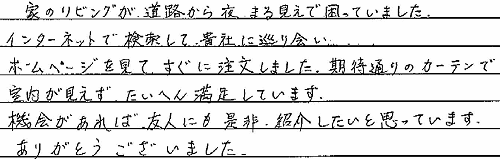 家のリビングが、道路から夜、まる見えで困っていました。
インターネットで検索して、貴社に巡り会い....
ホームページを見て、すぐに注文しました。期待通りのカーテンで
室内が見えず、たいへん満足しています。
機会があれば、友人にも是非、紹介したいと思っています。
ありがとうございました。